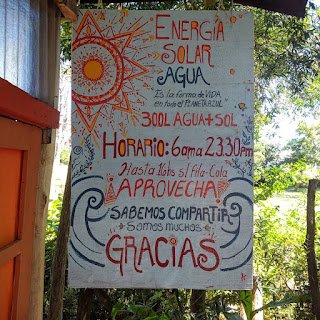 ENERGIA
SOLAR
AGUA
Es la forma de VIDA
en todo el PLANETA AZUL
300L AGUA+SOL
HORARIO: 6am a 23.30pm
Hasta 16hs s/ Fila-Cola
APROVECHA
SABEMOS COMPARTIR
SOMOS MUCHOS
GRACIAS